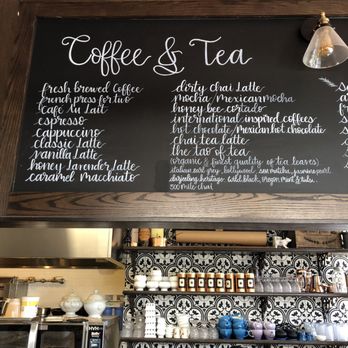 Coffee & Tea
fresh brewed Coffee
french press for two
Cafe au Lait
espresso
cappuccino
classic Latte
vanilla Latte
honey lavender Latte
caramel macchiato
dirty chai Latte
mocha/mexican mocha
honey bee cortado
international inspired coffees
hot chocolate/mexican hot chocolate
chai tea latte
the tao of tea
(organic & finest quality of tea leaves)
italian earl grey, bollywood, sea matcha, jasmine pearl
darjeeling heritage, wild black,
500 mile chai